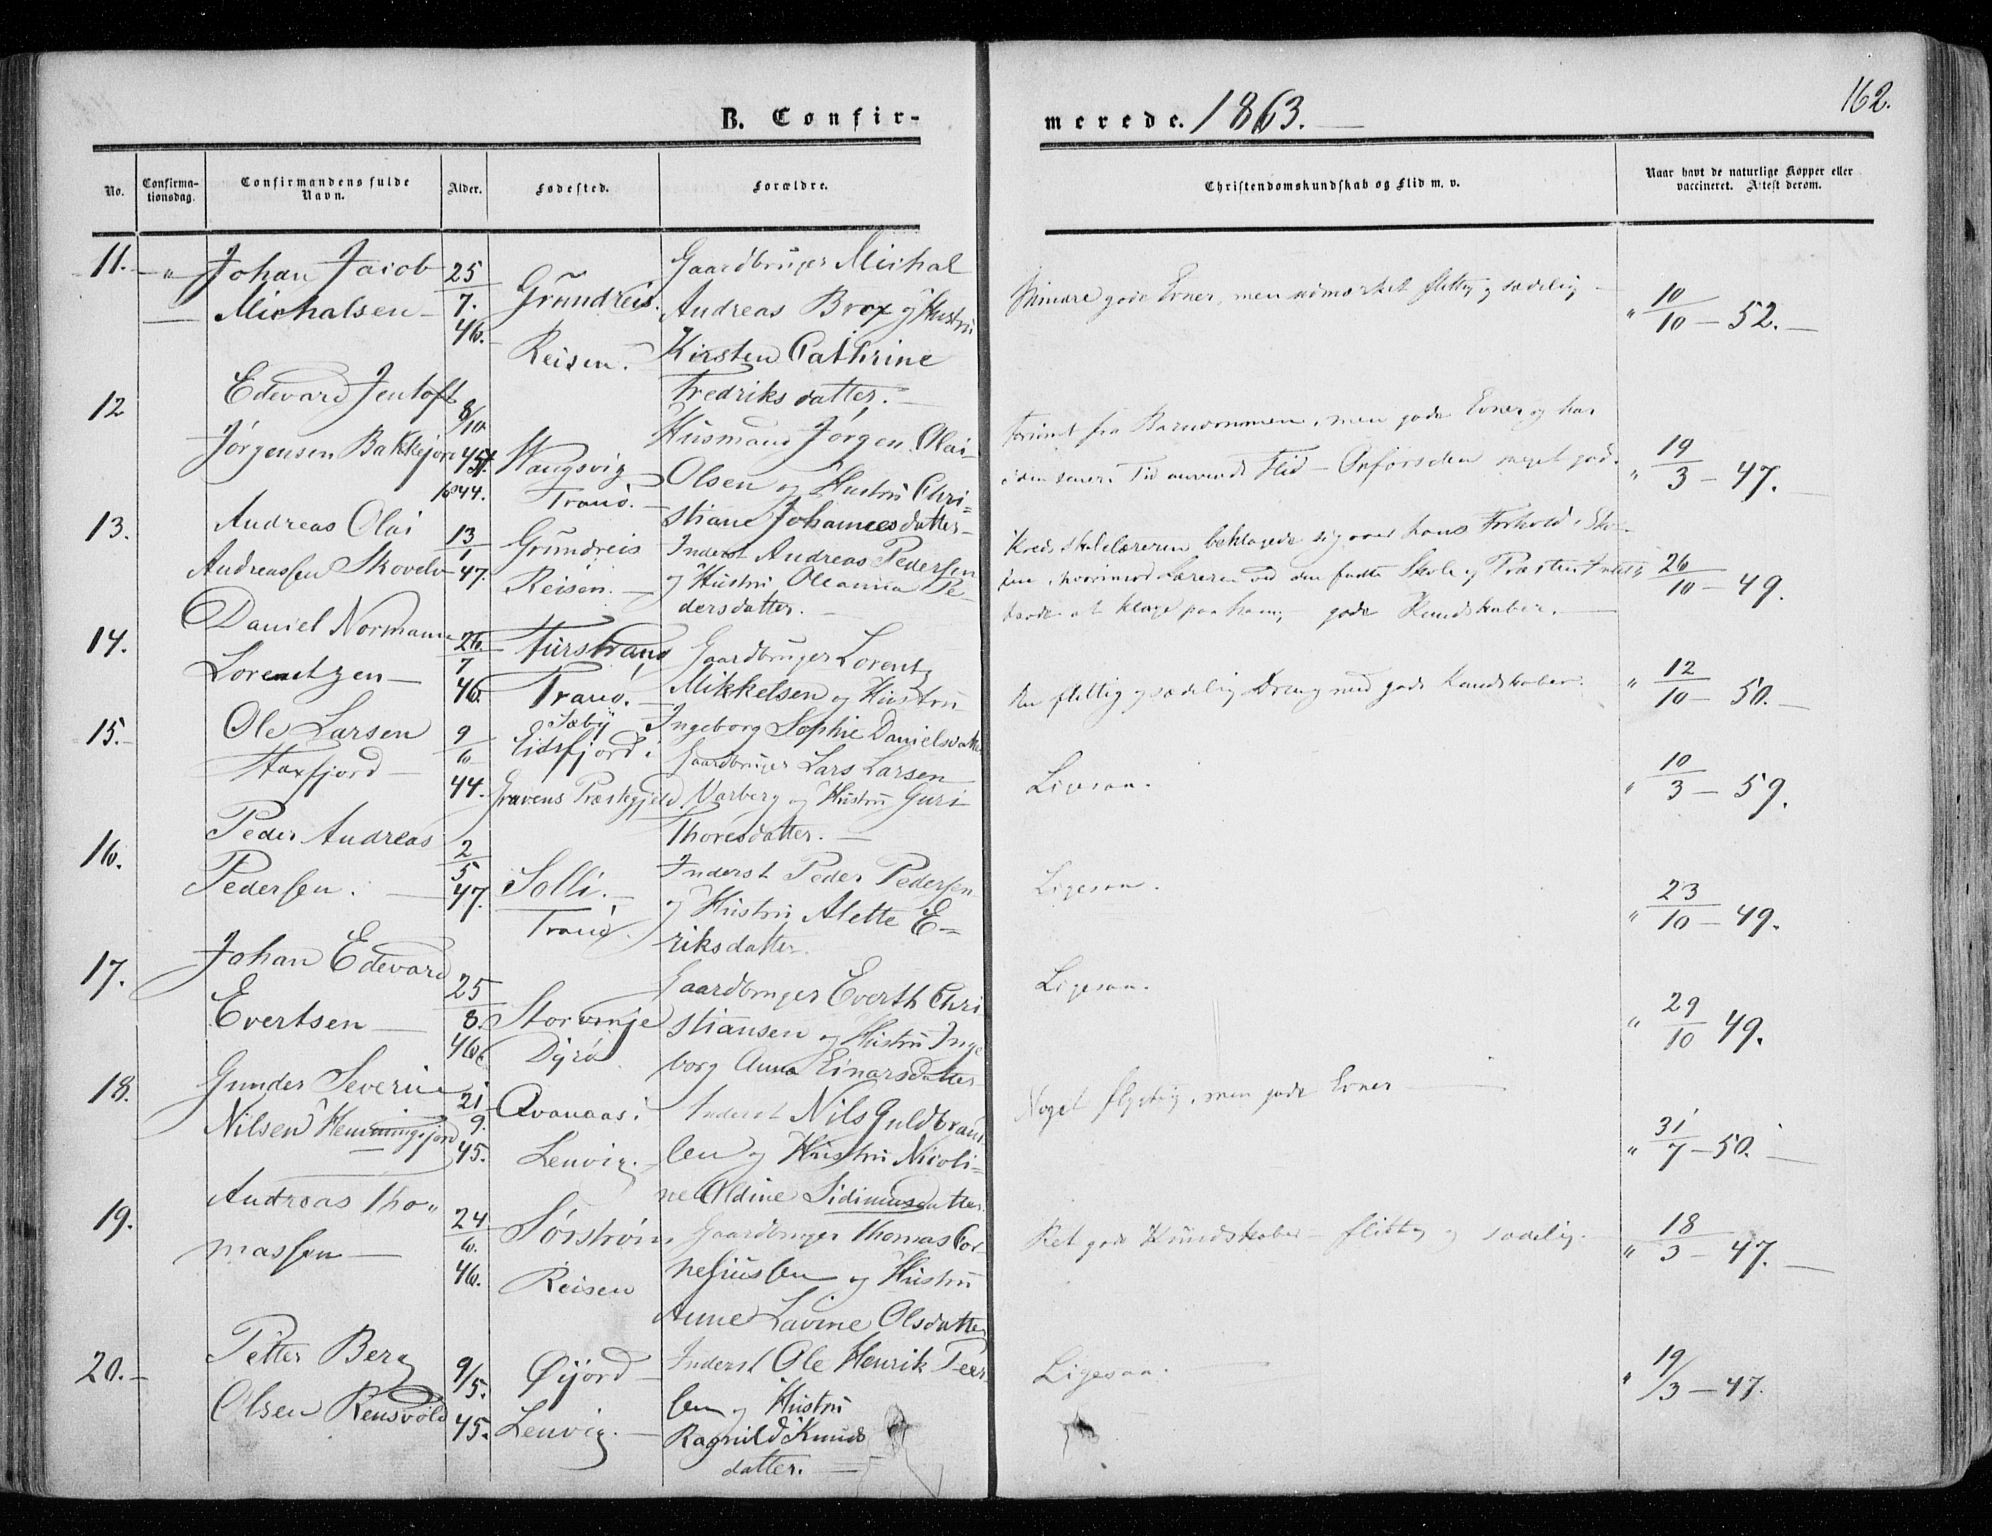 B. Confir-
merede. 1863.
162.
No.
Confirma-
tionsdag.
Confirmandens fulde
Navn.
Alder.
Fødested.
Forældre.
Christendomskundskab og Flid m. v.
Naar havt de naturlige Kopper eller
vaccineret. Attest derom.
11. - "
Johan Jacob
Michalsen -
25
7.
46.
Grundreis.
Reisen.
Gaardbruger Michal
Andreas Brox og Hustru
Kirsten Cathrine
Fredriksdatter. -
gode Evner, men udmærket flittig og sædelig -
" 10/10 - 52. -
12
Edevard Jentoft
Jørgensen
8/10
45
1844.
Vangsvig
Tranø. -
Husmand Jørgen Olai
Olsen og Hustru Chri-
stiane Johannesdatter -
fra Barndommen, men gode Evner og har
i den senere Tid anvendt Flid - Opførselen meget god.
" 19/3 - 47. -
13.
Andreas Olai
Andreassen Skovelv
13
1
47.
Grundreis
Reisen. -
Inderst Andreas Pedersen
og Hustru Oleanna Pe-
dersdatter. -
Kredsskolelæreren beklagede sig over hans Forhold i Sko-
len, hvorimod Læreren ved den faste Skole og Præsten Intet
havde at klage paa ham; gode Kundskaber. -
" 26/10 - 49.
14.
Daniel Normann
Lorentzen -
26
7
46.
Furstrand
Tranø. -
Gaardbruger Lorentz
Mikkelsen og Hustru
Ingeborg Sophie Danielsdatter
En flittig og sædelig Dreng med gode Kundskaber.
" 12/10 - 50. -
15. -
Ole Larsen
Staxfjord -
9
6
44.
Sæby
Eidsfjord i
Gravens Præstegjeld.
Gaardbruger Lars Larsen
Varberg og Hustru Guri
Thoresdatter. -
Ligesaa.
" 10/3 - 59.
16.
Peder Andreas
Pedersen. -
2
5
47.
Solli. -
Tranø.
Inderst Peder Pedersen
og Hustru Alette E=
riksdatter.
Ligesaa.
" 23/10 - 49.
17.
Johan Edevard
Evertsen -
25
8.
46.
Storvinje
Dyrø
Gaardbruger Everth Chri
stiansen og Hustru Inge
borg Anna Einarsdatter
Ligesaa.
" 29/10 49.
18.
Gunder Severin
Nilsen Hemmingsfjord
21
9.
45.
Qvanaas i
Lenvig. -
Inderst Nils Guldbrand
sen og Hustru Nicoli-
ne Oldine Sidimusdatter
Noget flygtig, men gode Evner -
" 31/7 - 50. -
19.
Andreas Tho"
massen -
24
6.
46.
Sørstrøm,
Reisen
Gaardbruger Thomas Cor-
neliussen og Hustru
Anne Lavine Olsdatter
Ret gode Kundskaber - flittig og sædelig.
" 18/3 - 47. -
20. -
Petter Berg
Olsen Rensvold
9/5.
45.
Øijord -
Lenvig. -
Inderst Ole Henrik Peer-
sen og Hustru
Ragnild Knuds
datter. -
Ligesaa. -
" 19/3 - 47.